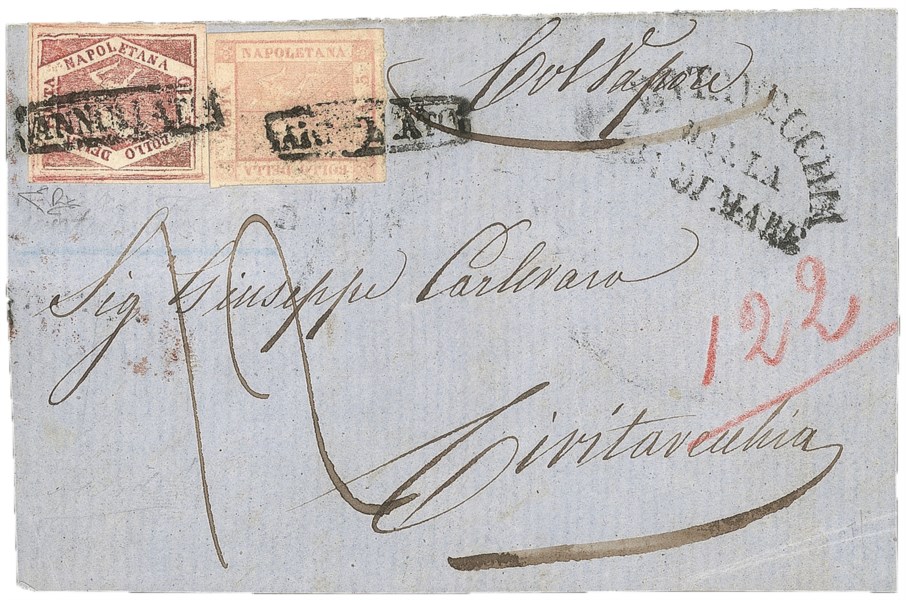 NAPOLETANA
BOLLO DELLA
ANNULLATO
NAPOLETANA
BOLLO DELLA
ANNULLATO
Col Vapore
CIVITAVECCHIA
DALLA
VIA DI MARE
Sig. Giuseppe Carlevaro
12
122
Civitavecchia